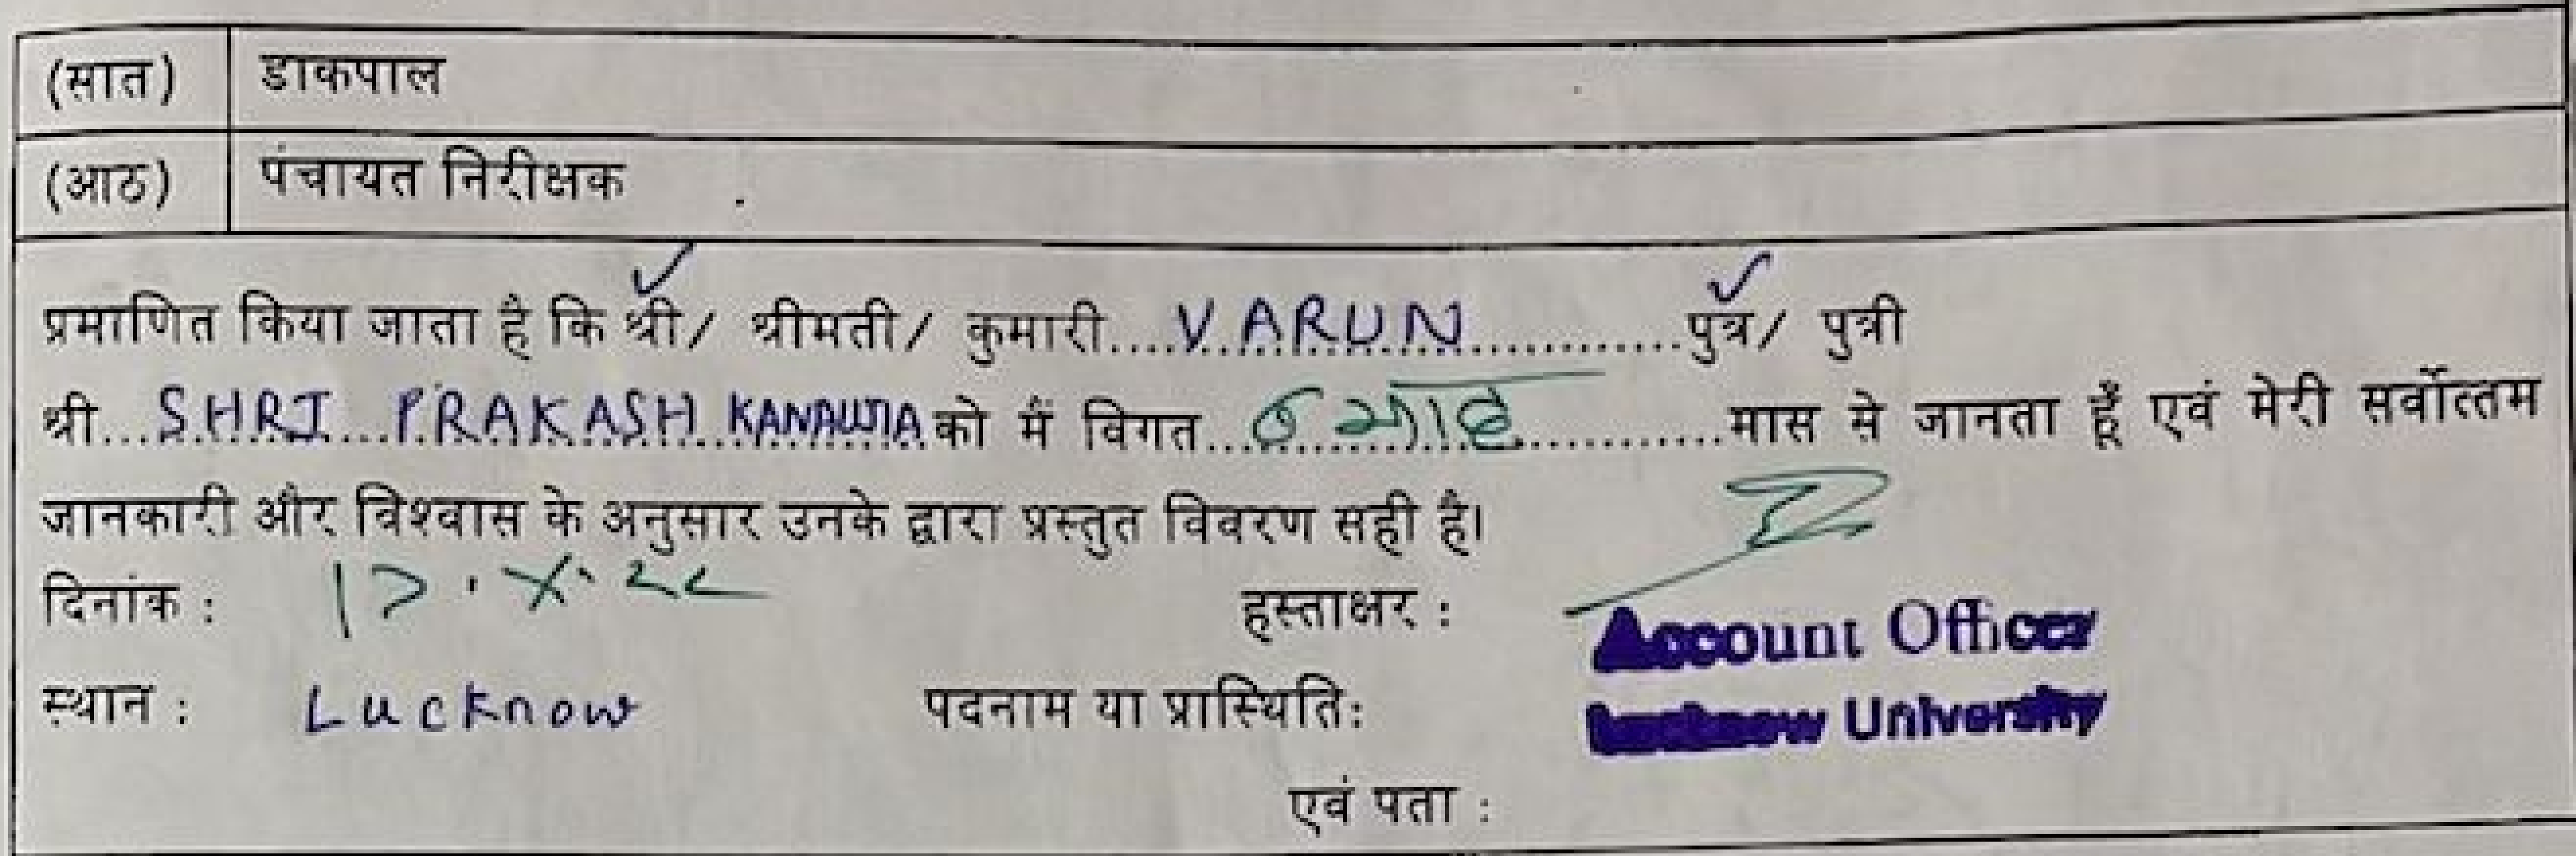 (सात) डाकपाल
(आठ) पंचायत निरीक्षक
प्रमाणित किया जाता है कि श्री/ श्रीमती/ कुमारी....VARUN..............पुत्र/ पुत्री
श्री...SHRI PRAKASH KANAUJIA को मैं विगत...6 माह............मास से जानता हूँ एवं मेरी सर्वोत्तम
जानकारी और विश्वास के अनुसार उनके द्वारा प्रस्तुत विवरण सही है।
दिनांक : 17.X.22 हस्ताक्षर :
Account Officer
स्थान : Lucknow पदनाम या प्रास्थिति:
Lucknow University
एवं पता :